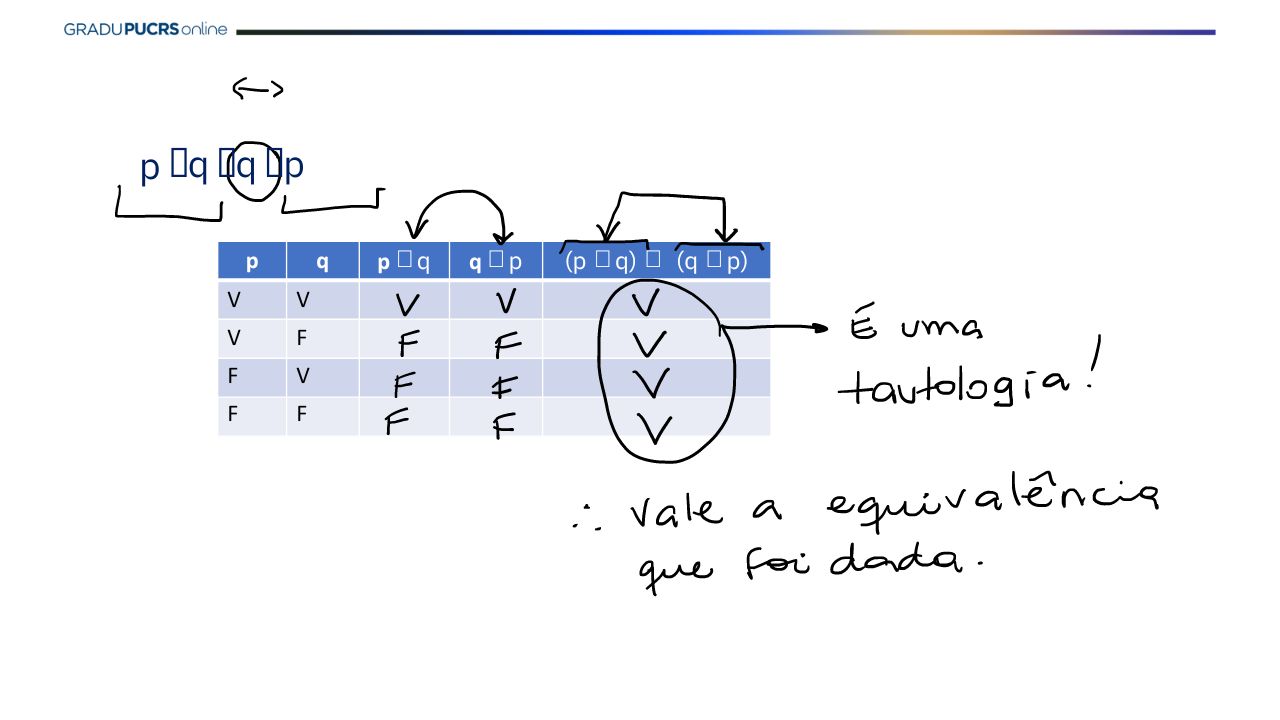 GRADUPUCRS online
↔
p □q □q □p
p q p □ q q □ p (p □ q) □ (q □ p)
V V V V V
V F F F V
F V F F V
F F F F V
É uma
tautologia!
∴ vale a equivalência
que foi dada.